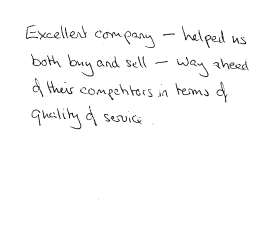 Excellent company – helped us
both buy and sell – way ahead
of their competitors in terms of
quality of service.